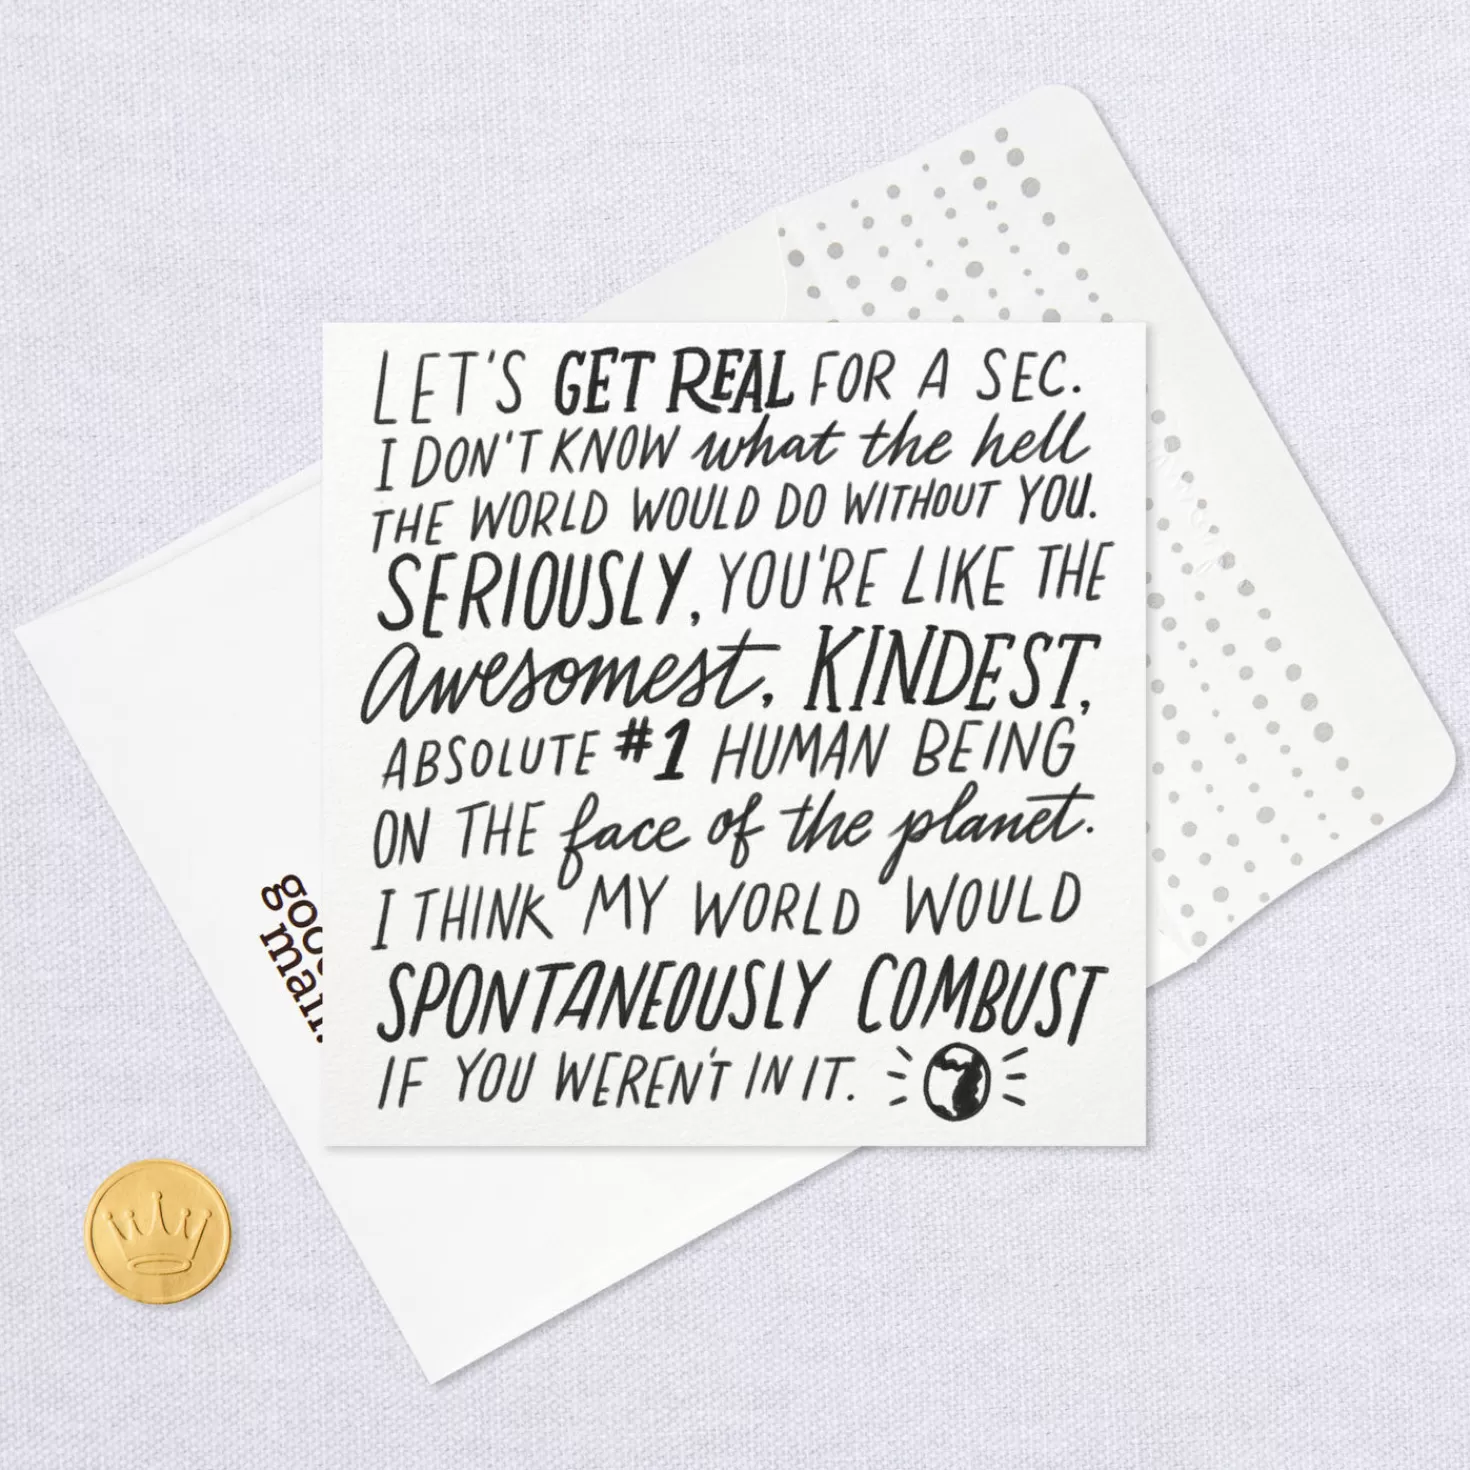 LET'S GET REAL FOR A SEC.
I DON'T KNOW what the hell
THE WORLD WOULD DO WITHOUT YOU.
SERIOUSLY, YOU'RE LIKE THE
awesomest, KINDEST,
ABSOLUTE #1 HUMAN BEING
ON THE face of the planet.
I THINK MY WORLD WOULD
SPONTANEOUSLY COMBUST
IF YOU WEREN'T IN IT.